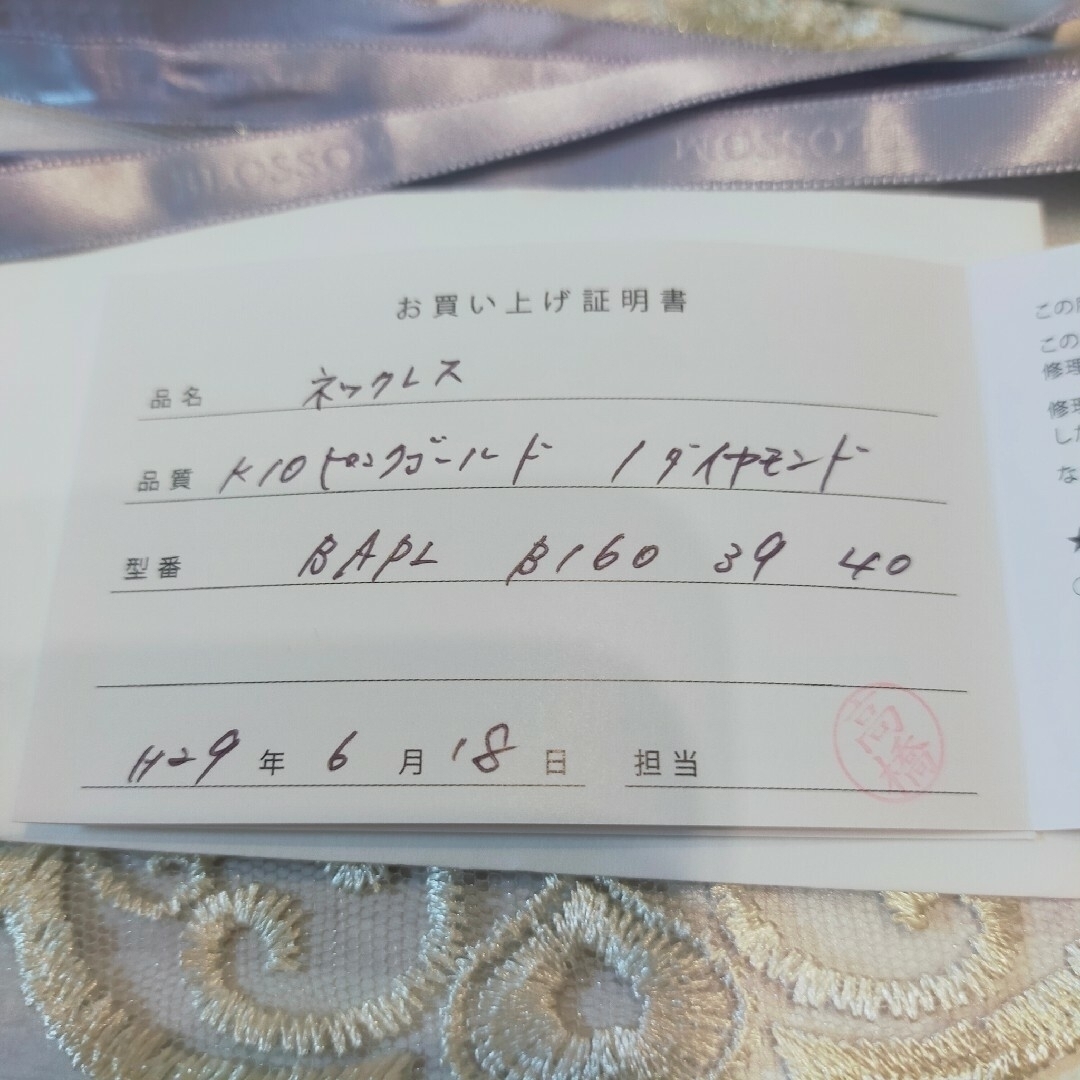 BLOSSO
BLOSSOM
お買い上げ証明書
品名 ネックレス
品質 K10ピンクゴールド / ダイヤモンド
型番 BAPL B160 39 40
H29年 6月 18日 担当 高橋
この
この
修理
修理
した
な